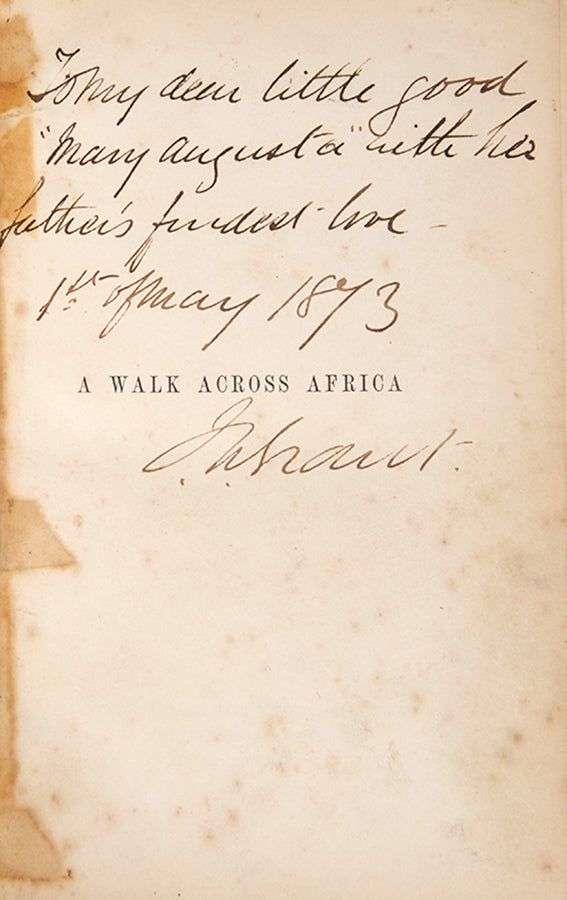 To my dear little good
"Mary Augusta" with her
father's fondest love -
1st of May 1873
A WALK ACROSS AFRICA
J. A. Grant.